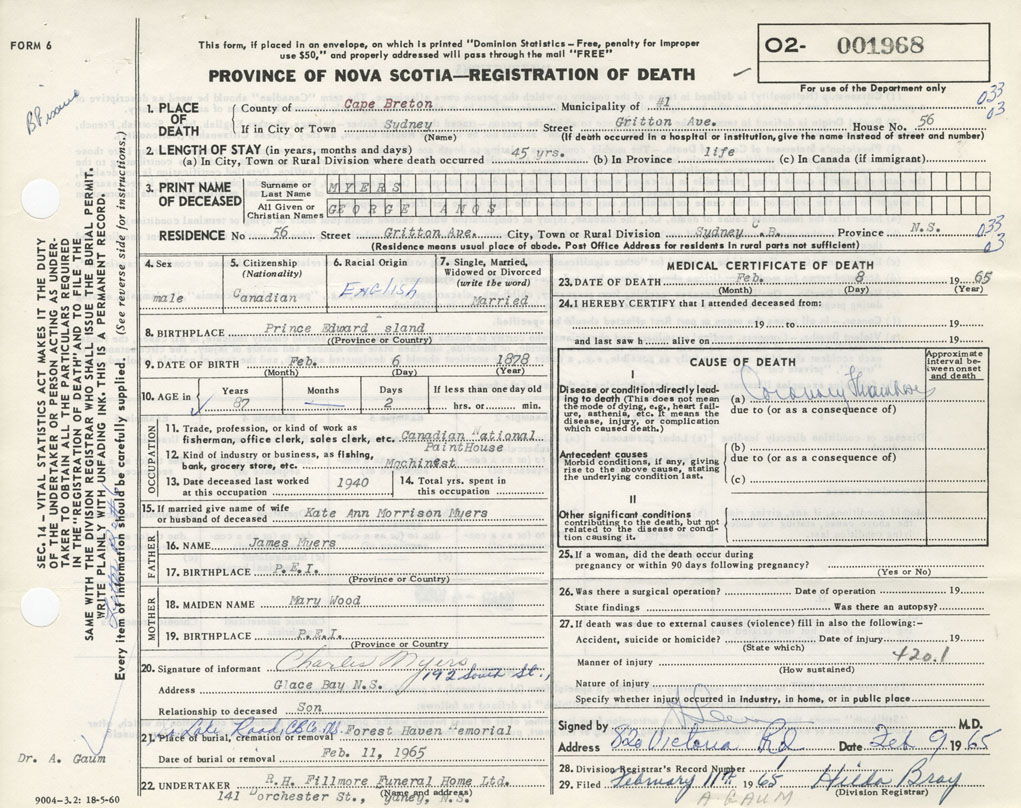 FORM 6
This form, if placed in an envelope, on which is printed "Dominion Statistics – Free, penalty for improper
use $50," and properly addressed will pass through the mail "FREE"
O2- 001968
PROVINCE OF NOVA SCOTIA—REGISTRATION OF DEATH
For use of the Department only
033
03
1. PLACE OF DEATH
County of Cape Breton Municipality of #1
If in City or Town Sydney Street Gritton Ave. House No. 56
(Name) (If death occurred in a hospital or institution, give the name instead of street and number)
2. LENGTH OF STAY (in years, months and days)
(a) In City, Town or Rural Division where death occurred 45 yrs. (b) In Province life (c) In Canada (if immigrant)
3. PRINT NAME OF DECEASED
Surname or Last Name MYERS
All Given or Christian Names GEORGE AMOS
RESIDENCE No 56 Street Gritton Ave. City, Town or Rural Division Sydney C.B. Province N.S.
(Residence means usual place of abode. Post Office Address for residents in rural parts not sufficient)
033
03
4. Sex male
5. Citizenship (Nationality) Canadian
6. Racial Origin English
7. Single, Married, Widowed or Divorced (write the word) Married
8. BIRTHPLACE Prince Edward sland
(Province or Country)
9. DATE OF BIRTH Feb. 6 1878
(Month) (Day) (Year)
10. AGE in Years 87 Months Days 2 If less than one day old hrs. or min.
OCCUPATION
11. Trade, profession, or kind of work as fisherman, office clerk, sales clerk, etc. Canadian National
PaintHouse
12. Kind of industry or business, as fishing, bank, grocery store, etc. Mochinest
13. Date deceased last worked at this occupation 1940
14. Total yrs. spent in this occupation
15. If married give name of wife or husband of deceased Kate Ann Morrison Myers
FATHER
16. NAME James Myers
17. BIRTHPLACE P.E.I.
(Province or Country)
MOTHER
18. MAIDEN NAME Mary Wood
19. BIRTHPLACE P.E.I.
(Province or Country
20. Signature of informant Charles Myers
192 South St.,
Address Glace Bay N.S.
Relationship to deceased Son
21. Place of burial, cremation or removal Lake Road, C.B.Co. NS. Forest Haven Memorial
Date of burial or removal Feb. 11, 1965
22. UNDERTAKER R.H. Fillmore Funeral Home Ltd.
(Name and address)
141 Dorchester St., ydney, N.S.
9004-3.2: 18-5-60
MEDICAL CERTIFICATE OF DEATH
23. DATE OF DEATH Feb. 8 1965
(Month) (Day) (Year)
24. I HEREBY CERTIFY that I attended deceased from:
19 to 19
and last saw h alive on 19
CAUSE OF DEATH
Approximate interval between onset and death
I
Disease or condition directly leading to death (This does not mean the mode of dying, e.g., heart failure, asthenia, etc. It means the disease, injury, or complication which caused death.)
(a) Coronary Thrombosis
due to (or as a consequence of)
Antecedent causes
Morbid conditions, if any, giving rise to the above cause, stating the underlying condition last.
(b)
due to (or as a consequence of)
(c)
II
Other significant conditions contributing to the death, but not related to the disease or condition causing it.
25. If a woman, did the death occur during pregnancy or within 90 days following pregnancy?
(Yes or No)
26. Was there a surgical operation? Date of operation 19
State findings Was there an autopsy?
27. If death was due to external causes (violence) fill in also the following:–
Accident, suicide or homicide? Date of injury 19
(State which)
420.1
Manner of injury
(How sustained)
Nature of injury
Specify whether injury occurred in industry, in home, or in public place
Signed by M.D.
Address 820 Victoria Rd Date Feb 9 1965
28. Division Registrar's Record Number
29. Filed February 11th 1965 Hilda Bray
(Division Registrar)
A GAUM
SEC. 14 – VITAL STATISTICS ACT MAKES IT THE DUTY
OF THE UNDERTAKER OR PERSON ACTING AS UNDER-
TAKER TO OBTAIN ALL THE PARTICULARS REQUIRED
IN THE "REGISTRATION OF DEATH" AND TO FILE THE
SAME WITH THE DIVISION REGISTRAR WHO SHALL ISSUE THE BURIAL PERMIT.
WRITE PLAINLY WITH UNFADING INK. THIS IS A PERMANENT RECORD.
Every item of information should be carefully supplied. (See reverse side for instructions.)
Dr. A. Gaum